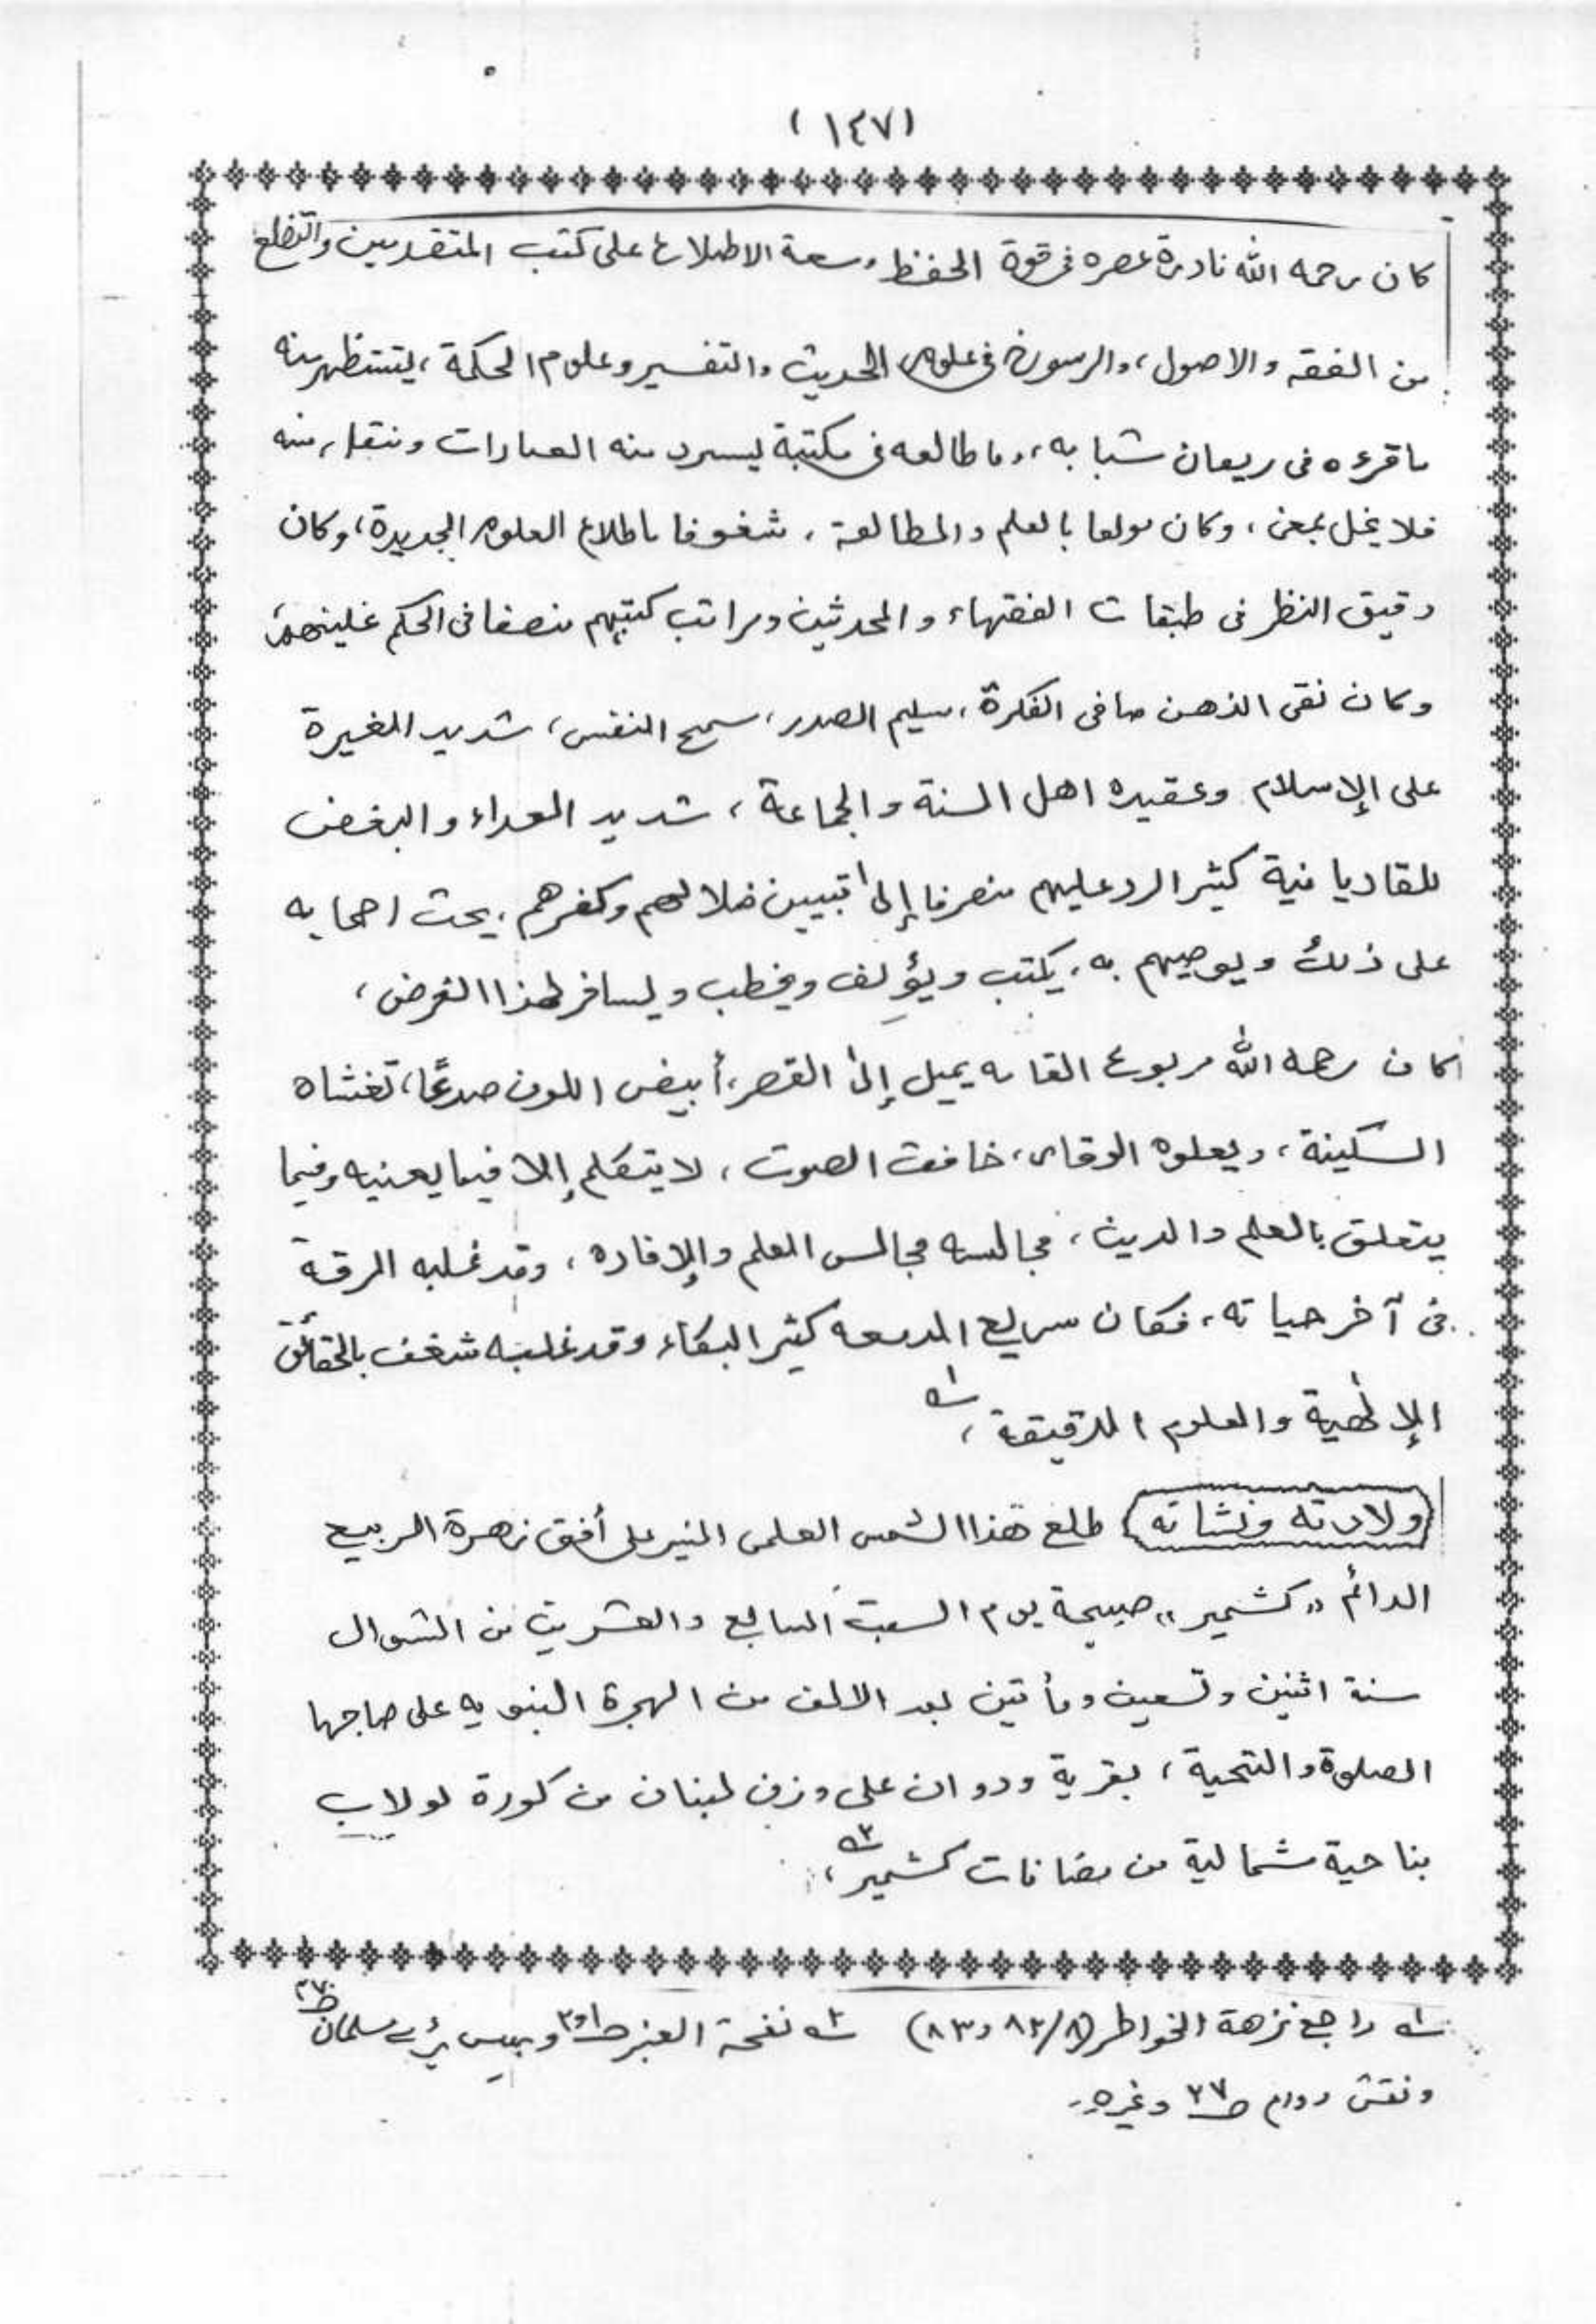 (١٤٧)
كان رحمه الله نادرة عصره في قوة الحفظ وسعة الاطلاع على كتب المتقدمين والتضلع
من الفقه والاصول، والرسوخ في علوم الحديث والتفسير وعلوم الحكمة، يستظهر منه
ما قرءه فى ريعان شبابه، وما طالعه فى مكتبة يسرد منه العبارات وينقل منه
فلا يخل بمعنى، وكان مولعا بالعلم والمطالعة، شغوفا باطلاع العلوم الجديدة، وكان
دقيق النظر فى طبقات الفقهاء والمحدثين ومراتب كتبهم منصفا فى الحكم عليهم،
وكان نقى الذهن صافى الفكرة، سليم الصدر، سمح النفس، شديد الغيرة
على الإسلام وعقيده اهل السنة والجماعة، شديد العداء والبغض
للقاديانية كثير الرد عليهم منصرفا إلى تبيين ضلالهم وكفرهم، يحث اصحابه
على ذلك ويوصيهم به، يكتب ويؤلف ويخطب ويسافر لهذا الغرض،
كان رحمه الله مربوع القامه يميل إلى القصر، أبيض اللون صدعًا، تغشاه
السكينة، ويعلوه الوقار، خافت الصوت، لا يتكلم إلا فيما يعنيه وفيما
يتعلق بالعلم والدين، مجالسه مجالس العلم والإفاده، وقد غلبه الرقة
فى آخر حياته، فكان سريع الدمعه كثير البكاء وقد غلبه شغف بالحقائق
الإلهية والعلوم الدقيقة، ١ه
ولادته ونشاته طلع هذا الشمس العلمى المنير على أفق زهرة الربيع
الدائم "كشمير" صبيحة يوم السبت السابع والعشرين من الشوال
سنة اثنين وتسعين ومأتين بعد الالف من الهجرة النبويه على صاحبها
الصلوة والتحية، بقرية ودوان على وزن لبنان من كورة لولاب
بناحية شمالية من مضافات كشمير، ٢ه
١ه راجع نزهة الخواطر (٨/ ٨٢ و٨٣) ٢ه نفحة العنبر ص١و٢ وبيس بڑے مسلمان ص٣٧٠
ونقش دوام ص٢٧ وغيره۔